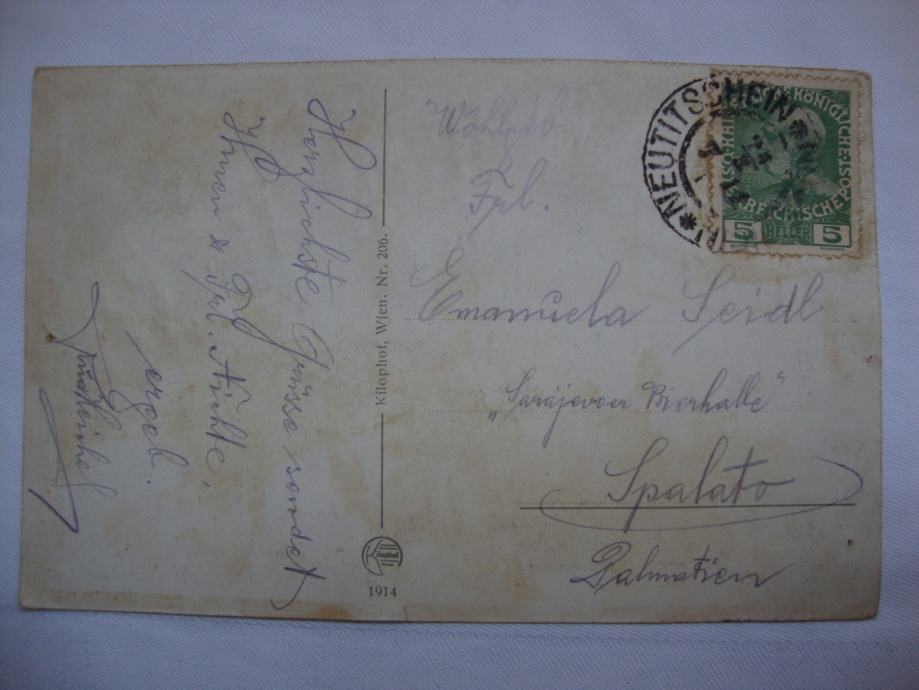 Herzlichste Grüsse sendet
Ihnen & Frl. Nichte,
ergeb.
Kilophot, Wien. Nr. 206.
Kilophot
1914
Wohlgeb.
Frl.
Emanuela Seidl
„Sarajevoer Bierhalle“
Spalato
Dalmatien
* NEUTITSCHEIN *
KÖNIGLICHE
POST
REICHISCHE
5 HELLER 5